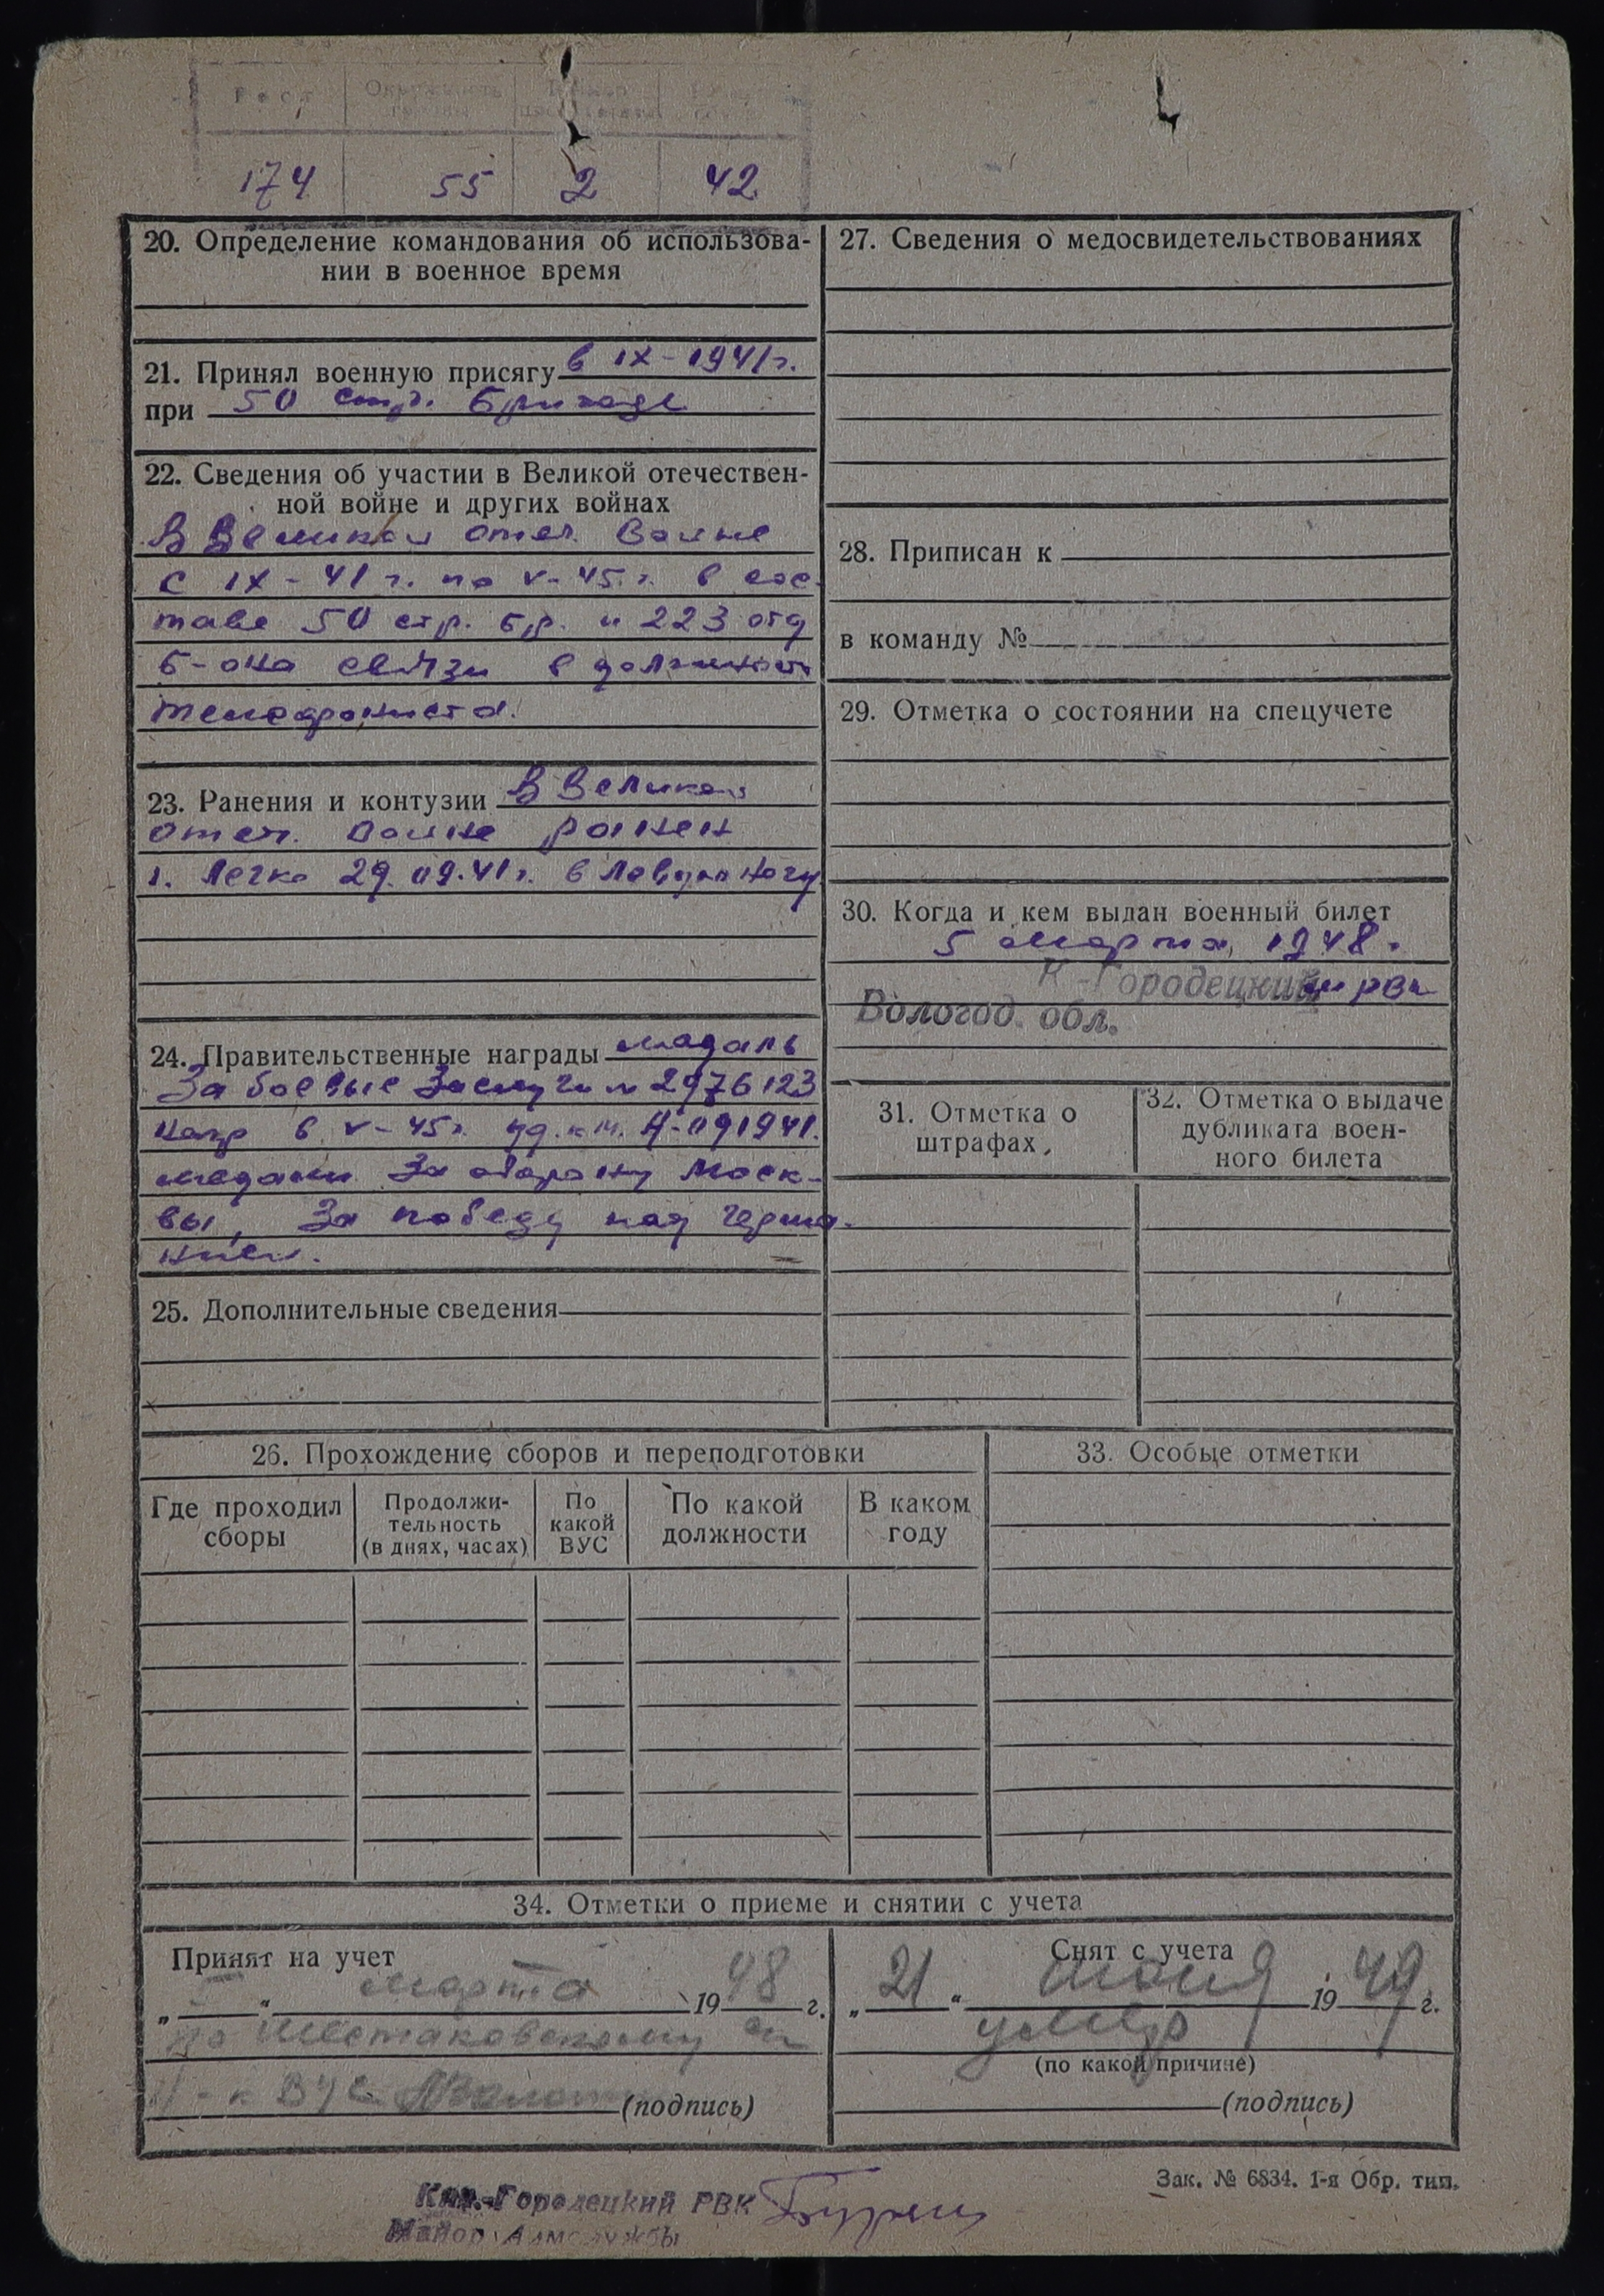 Рост Окружность головы Размер противогаза Размер обуви
174 55 2 42
20. Определение командования об использова-
нии в военное время
21. Принял военную присягу в IX-1941г.
при 50 стр. бригаде
22. Сведения об участии в Великой отечествен-
ной войне и других войнах
В Великой отеч. войне
с IX-41г. по V-45.г. в сос-
таве 50 стр. бр. и 223 отд
б-она связи в должности
телефониста.
23. Ранения и контузии В Великой
отеч. войне ранен
1. Легко 29.09.41г. в левую ногу
24. Правительственные награды медаль
За боевые заслуги № 2976123
нагр в V-45г. уд. к м. А-091941.
медали За оборону Моск-
вы, За победу над Герма-
нией.
25. Дополнительные сведения
27. Сведения о медосвидетельствованиях
28. Приписан к
в команду №
29. Отметка о состоянии на спецучете
30. Когда и кем выдан военный билет
5 марта, 1948г.
К-Городецким РВК
Вологод. обл.
31. Отметка о
штрафах
32. Отметка о выдаче
дубликата воен-
ного билета
26. Прохождение сборов и переподготовки
Где проходил
сборы
Продолжи-
тельность
(в днях, часах)
По
какой
ВУС
По какой
должности
В каком
году
33. Особые отметки
34. Отметки о приеме и снятии с учета
Принят на учет
„5“ марта 1948 г.
по Шестаковскому
Н-к ВУС
(подпись)
Снят с учета
„21“ июня 1949 г.
умер
(по какой причине)
(подпись)
Зак. № 6834. 1-я Обр. тип.
Кич.-Городецкий РВК
Майор Адм службы